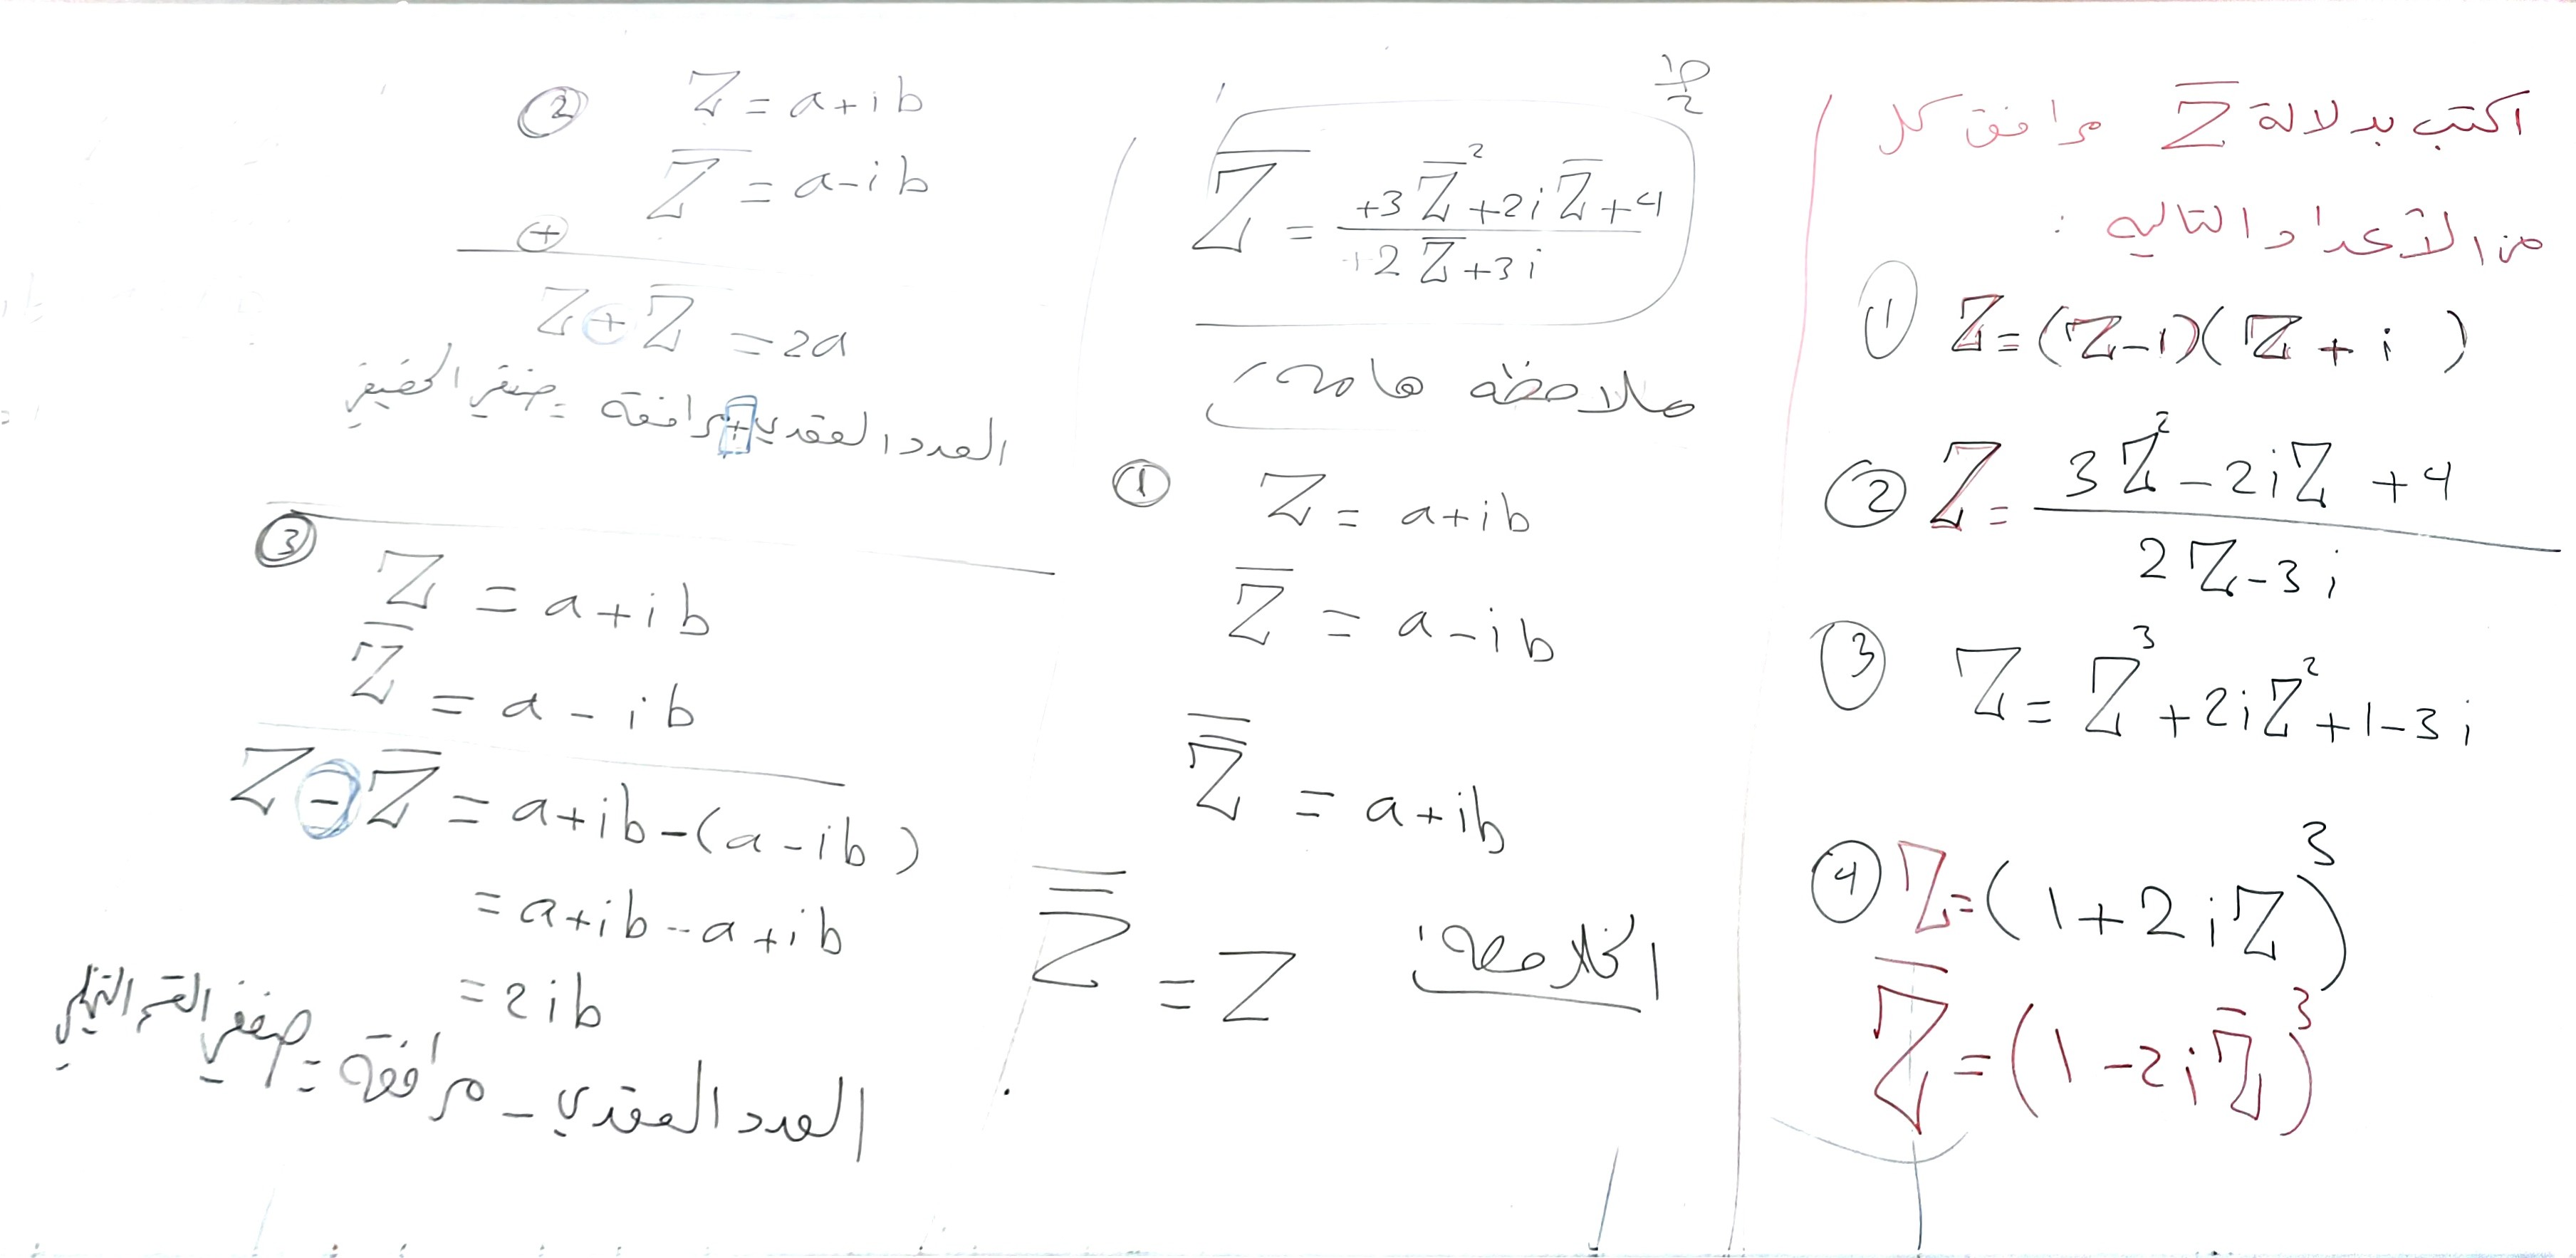 اكتب بدلالة Z̅ مرافق كل
من الأعداد التالية :
① Z = (Z-1)(Z+i)
② Z = (3Z² - 2iZ + 4) / (2Z - 3i)
③ Z = Z³ + 2iZ² + 1 - 3i
④ Z = (1 + 2iZ)³
Z̅ = (1 - 2iZ̅)³
Z̅ = (+3Z̅² + 2iZ̅ + 4) / (+2Z̅ + 3i)
ملاحظة هامة:
① Z = a + ib
Z̅ = a - ib
Z̿ = a + ib
الخلاصة:
Z̿ = Z
② Z = a + ib
Z̅ = a - ib
⊕
Z + Z̅ = 2a
العدد العقدي + مرافقة = ضعفي الحقيقي
③ Z = a + ib
Z̅ = a - ib
Z - Z̅ = a + ib - (a - ib)
= a + ib - a + ib
= 2ib
العدد العقدي - مرافقة = ضعفي القسم التخيلي